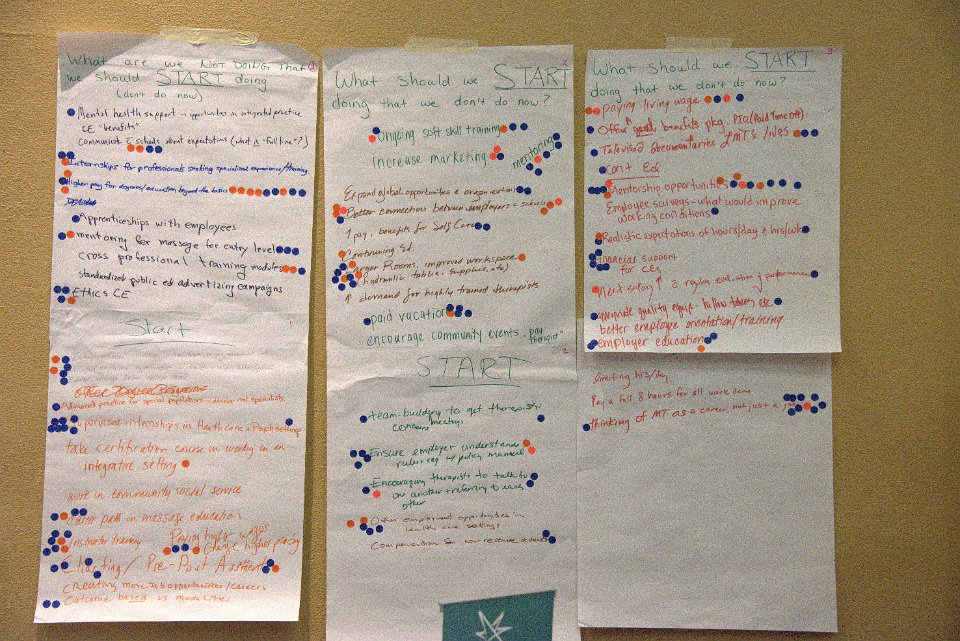 What are we NOT DOING that
we should START doing
(don't do now)
Mental health support - opportunities in integrated practice
CE "benefits"
Communicate schools about expectations (what is "full time"?)
Internships for professionals seeking specialized experience/training
Higher pay for degrees/education beyond the basics
Apprenticeships with employees
mentoring for message for entry level
cross professional training modules
Standardized public ed advertizing campaigns
Ethics CE
Start
Offer Degree Programs
Advanced practice in special populations - develop specialists
Supervised internships in Health Care & Psych settings
take certification course in working in an
integrative setting
work in community social service
Career path in massage education
instructor training
Paying higher wages
charge higher
Charting / Pre-Post Assment
Creating more job opportunities/careers
Outcome based vs modalities
2
What should we START
doing that we don't do now?
Ongoing soft skill training
Increase marketing
mentoring
Expand global opportunities & organizations
Better connections between employers & schools
↑ pay, benefits for Self Care
Continuing Ed
Larger Rooms, improved workspace
hydraulic tables, supplies, etc)
↑ demand for highly trained therapists
paid vacation
encourage community events "pay therapist"
2
START
team-building to get therapists
concerns meetings
Ensure employer understands
rules + reg w/ policy manual
Encouraging therapists to talk to
one another + referring to each
other
Other employment opportunities in
health care settings
Compensation for non-revenue
3
What should we START
doing that we don't do now?
Paying living wage
Offer good benefits pkg. PTO (Paid Time off)
Televised Documentaries LMT's lives
Con't Ed
Mentorship opportunities
Employee surveys - what would improve
working conditions
Realistic expectations of hours/day & hrs/wk
financial support
for CEs
Merit salary ↑ & regular evaluation of performance
appropriate quality equip. - follow through etc
better employee orientation/training
employer education
Limiting hrs/day
Pay a full 8 hours for all work done
thinking of MT as a career not just a job